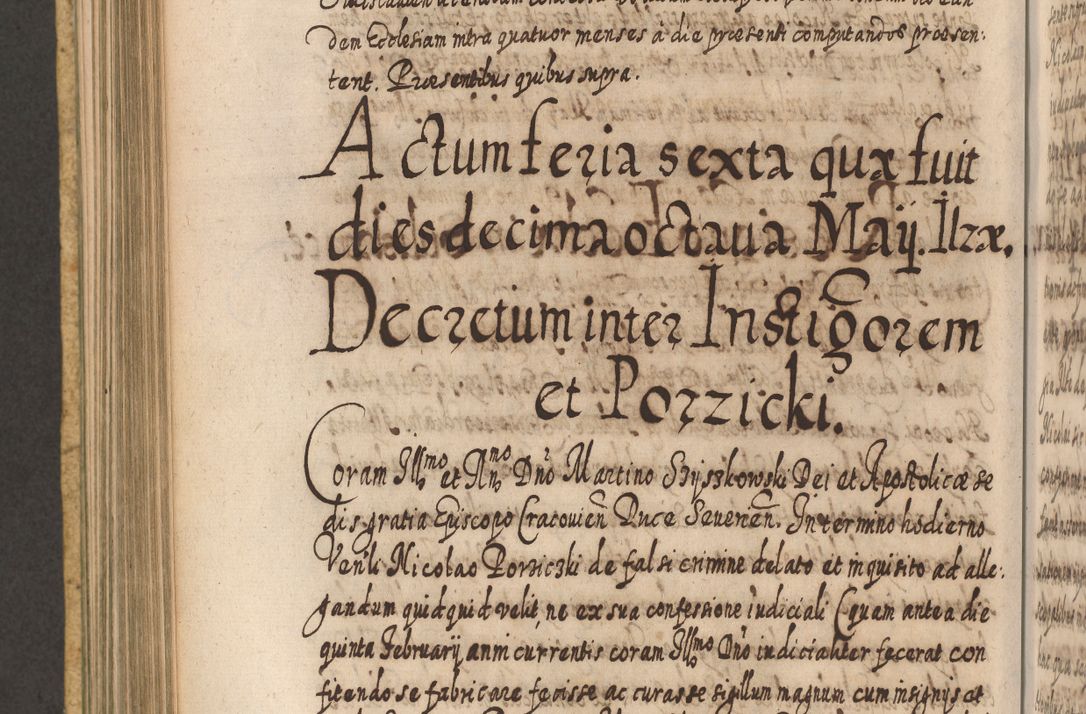 dem Ecclesiam intra quatuor menses á die præsenti computandos præsen:
tent. Præsentibus quibus supra.
Actum feria sexta quæ fuit
dies decima octaua Maÿ. Ilzæ.
Decretum inter Instigorem
et Porzicki.
Coram Illmo et Rnmo Dno Martino Szyszkowski Dei et Apostolicæ se
dis gratia Episcopo Cracouien Duce Seuerien. In termino hodierno
Venli Nicolao Porziczki de falsi crimine delato et inquisito ad alle:
gandum quidquid velit, ne ex sua confessione iudiciali (quam antea die
quinta Februarÿ anni currentis coram Illmo Dno iudicialiter fecerat con
fitendo se fabricare fecisse ac curasse sigillum magnum cum insignÿs et